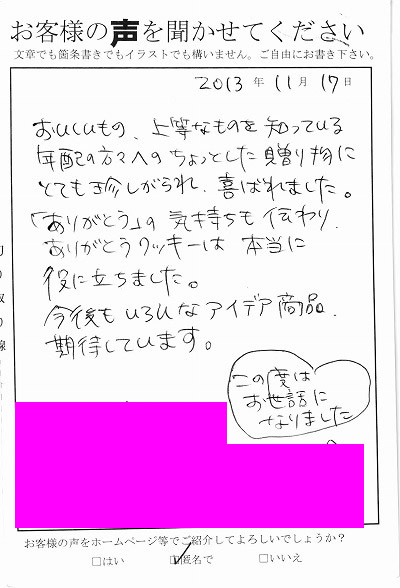 お客様の声を聞かせてください
文章でも箇条書きでもイラストでも構いません。ご自由にお書き下さい。
2013年11月17日
おいしいもの、上等なものを知っている
年配の方々へのちょっとした贈り物に
とても珍しがられ、喜ばれました。
「ありがとう」の気持ちも伝わり、
ありがとうクッキーは本当に
役に立ちました。
今後もいろいろなアイデア商品、
期待しています。
この度は
お世話に
なりました
お客様の声をホームページ等でご紹介してよろしいでしょうか？
□はい □匿名で □いいえ